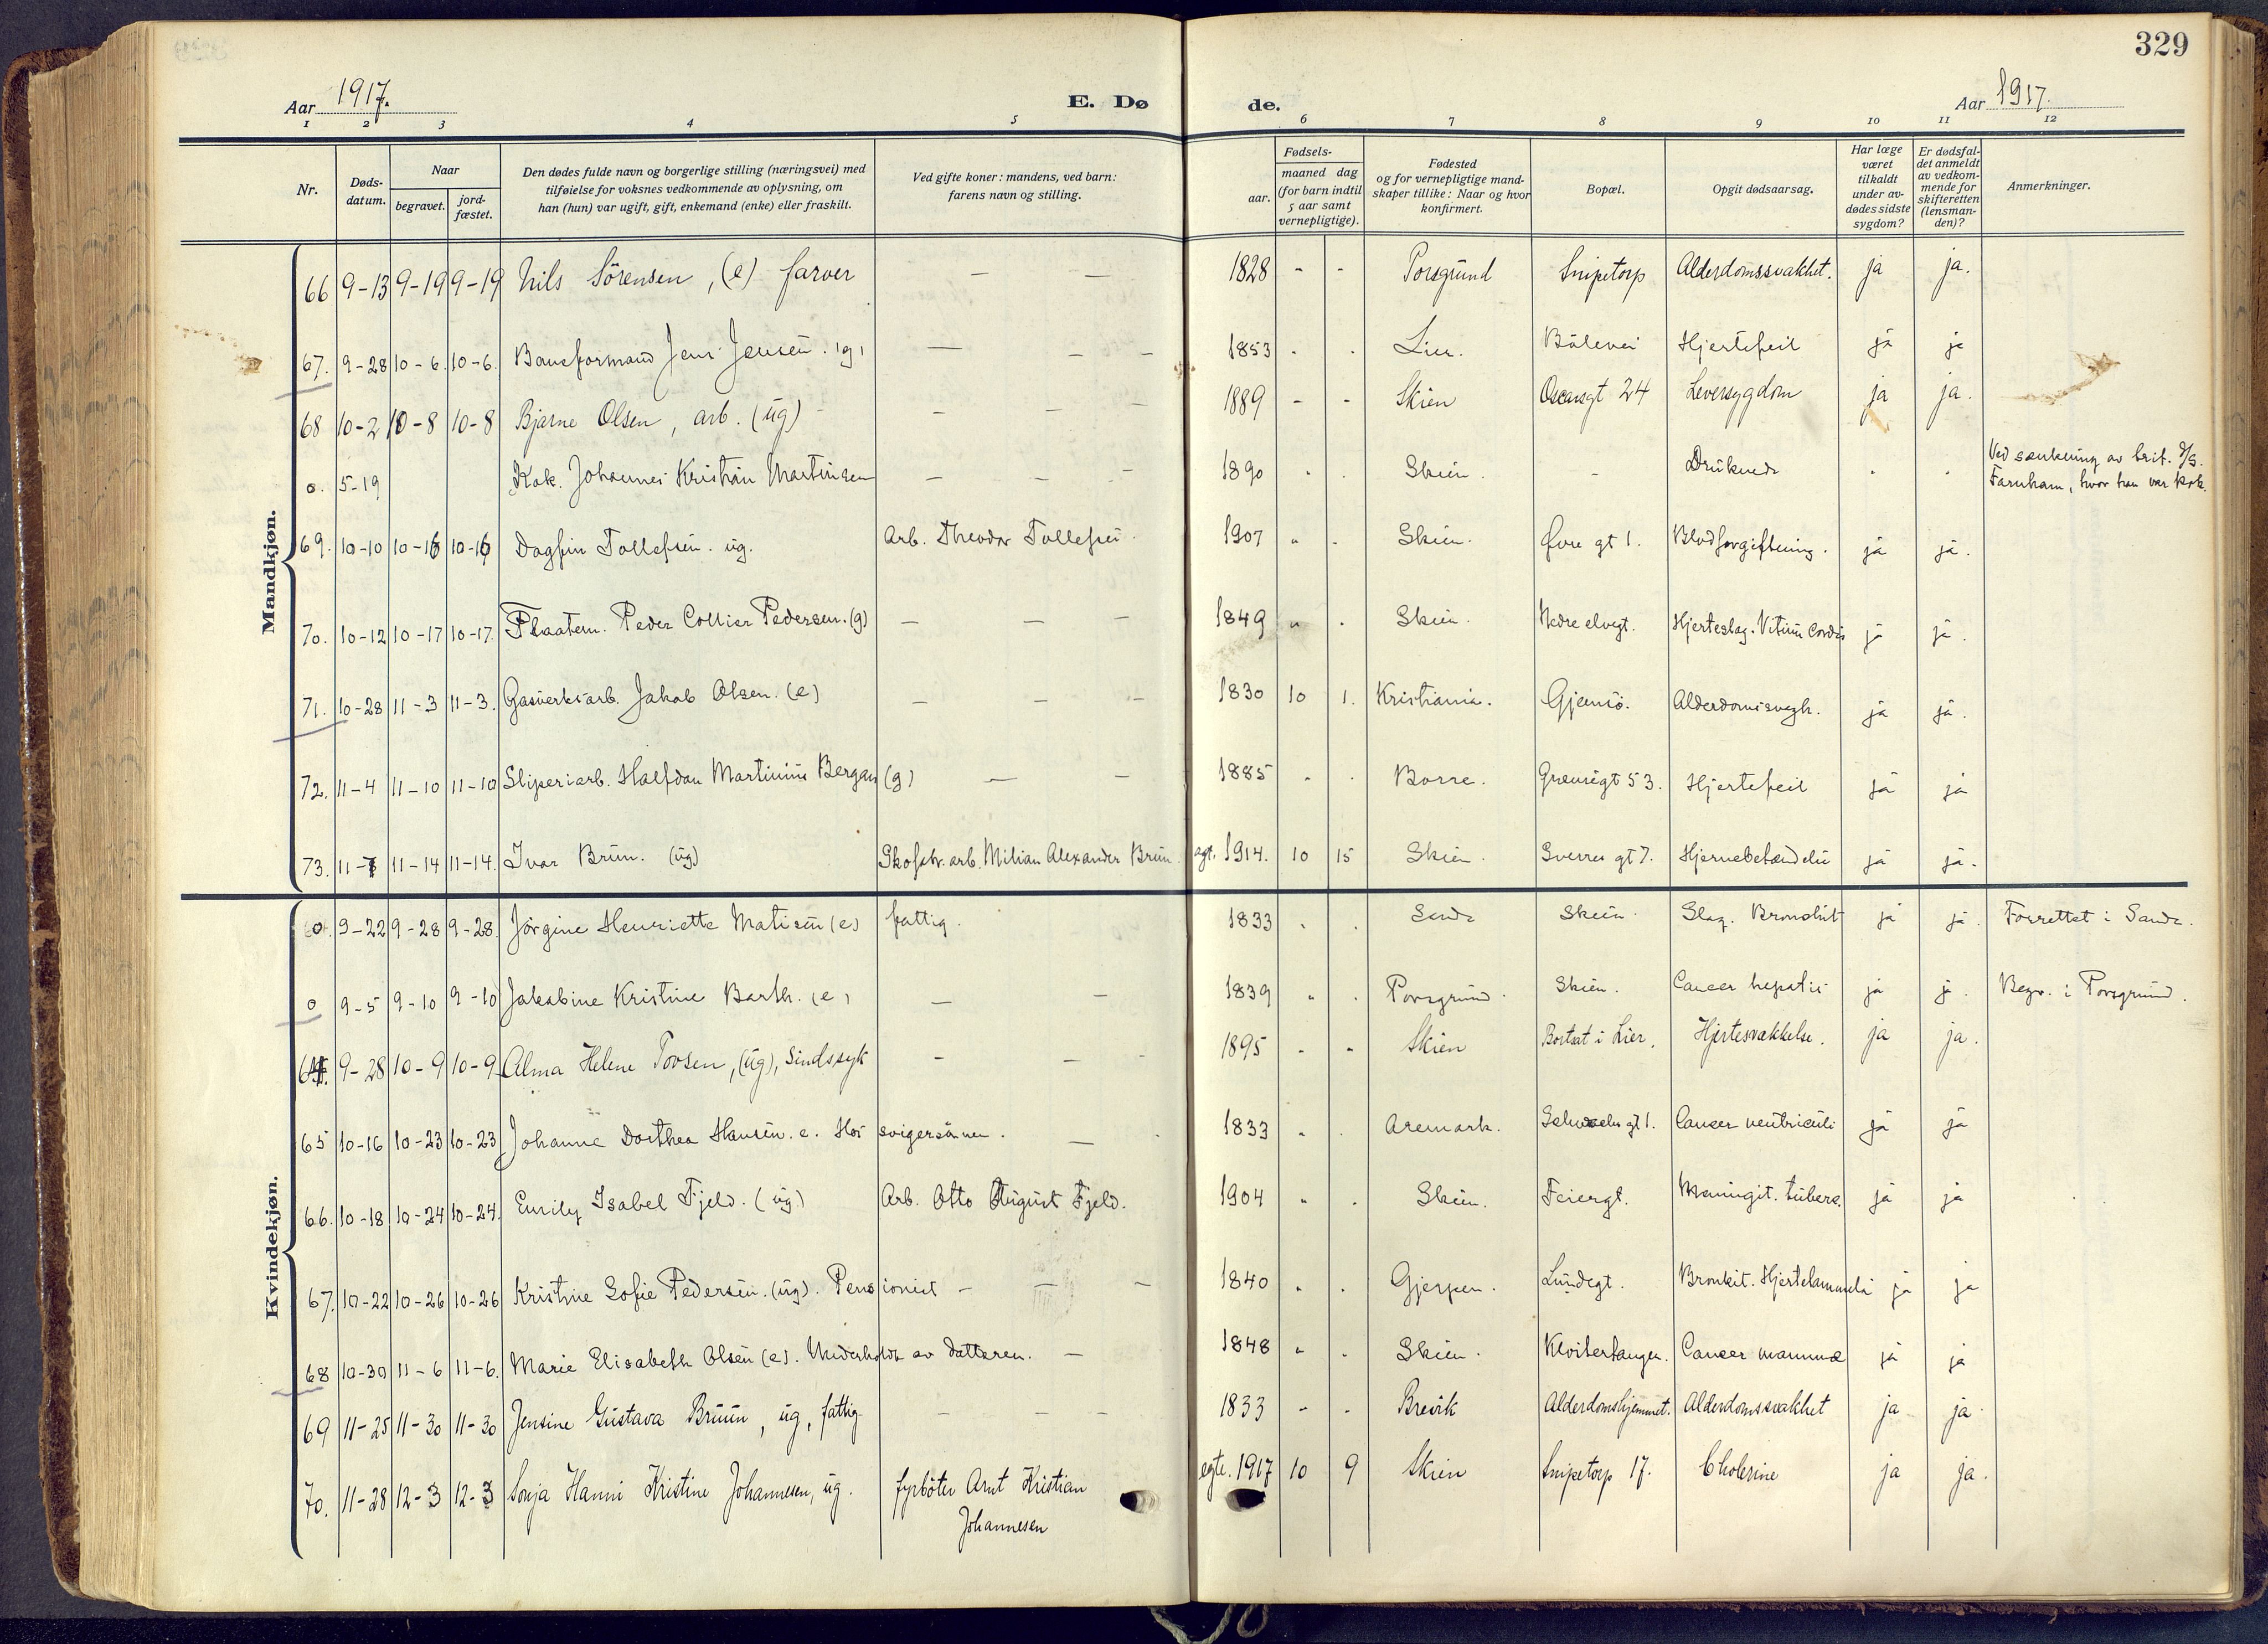 329
Aar 1917.
E. Dø de.
Aar 1917.
1 2 3 4 5 6 7 8 9 10 11 12
Nr.
Døds-datum.
Naar
begravet.
jord-fæstet.
Den dødes fulde navn og borgerlige stilling (næringsvei) med
tilføielse for voksnes vedkommende av oplysning, om
han (hun) var ugift, gift, enkemand (enke) eller fraskilt.
Ved gifte koner: mandens, ved barn:
farens navn og stilling.
Fødsels-
aar.
maaned dag
(for barn indtil
5 aar samt
vernepligtige).
Fødested
og for vernepligtige mand-
skaper tillike: Naar og hvor
konfirmert.
Bopæl.
Opgit dødsaarsag.
Har læge
været
tilkaldt
under av-
dødes sidste
sygdom?
Er dødsfal-
det anmeldt
av vedkom-
mende for
skifteretten
(lensman-
den)?
Anmerkninger.
Mandkjøn.
66 9-13 9-19 9-19 Nils Sörensen, (e) farver — — 1828 - - Porsgrund Snipetorp Alderdomssvakhet. ja ja.
67. 9-28 10-6. 10-6. Baneformand Jens Jensen. (g) — — — 1853 - - Lier. Bölevei Hjertefeil ja ja
68 10-2 10-8 10-8 Bjarne Olsen, arb. (ug) — — — 1889 - - Skien Oscarsgt 24 Leversygdom ja ja.
0. 5-19 Kok. Johannes Kristian Martinsen — — — 1890 - - Skien. - Druknede - - Ved sænkning av brit. D/S.
Farnham, hvor han var kok.
69. 10-10 10-16 10-16 Dagfin Tollefsen. ug. Arb. Theodor Tollefsen. 1907 - - Skien. Øvre gt 1. Blodforgiftning. ja ja.
70. 10-12 10-17 10-17. Flaatem. Peder Collier Pedersen. (g) — — — 1849 - - Skien. Nedre elvegt. Hjerteslag. Vitium Cordis ja ja.
71. 10-28 11-3 11-3. Gasverksarb. Jakob Olsen. (e) — — — 1830 10 1. Kristiania. Gjemsö. Alderdomssvagh. ja ja.
72. 11-4 11-10 11-10 Sliperiarb. Halfdan Martinius Bergan (g) — — 1885 - - Borre. Grensegt 53. Hjertefeil ja ja
73. 11-7 11-14 11-14. Ivar Brun. (ug) Skofabr. arb. Milian Alexander Brun. egt. 1914. 10 15 Skien. Sverres gt 7. Hjernebetændelse ja ja.
Kvindekjøn.
0. 9-22 9-28 9-28. Jörgine Henriette Matisen (e) fattig. 1833 - - Sande Skien. Slag. Bronchit ja ja. Forrettet i Sande.
0 9-5 9-10 9-10 Jakobine Kristine Barth. (e) — — 1839 - - Porsgrund. Skien. Cancer hepatis ja ja. Begr. i Porsgrund.
64. 9-28 10-9 10-9 Alma Helene Tovsen, (ug), Sindssyk — — — 1895 - - Skien Bortsat i Lier. Hjertesvækkelse. ja ja.
65 10-16 10-23 10-23 Johanne Dorthea Hansen. e. Hos svigersönnen. — 1833 - - Aremark. gt 1. Cancer ventriculi ja ja
66. 10-18 10-24 10-24. Emily Isabel Fjeld. (ug) Arb. Otto August Fjeld. 1904 - - Skien. Feiergt. Meningit. tuberc. ja ja
67. 10-22 10-26 10-26 Kristine Sofie Pedersen. (ug). Pensionist — — — 1840 - - Gjerpen. Lundegt. Bronkit. Hjertelammelse ja ja
68 10-30 11-6 11-6. Marie Elisabeth Olsen (e). Underholdt av datteren. — 1848 - - Skien. Klostertangen. Cancer mammæ ja ja
69 11-25 11-30 11-30 Jensine Gustava Bruun, ug, fattig — — — 1833 - - Brevik Alderdomshjemmet. Alderdomssvakhet ja ja
70. 11-28 12-3 12-3 Sonja Hanni Kristine Johannesen, ug. fyrböter Arnt Kristian
Johannesen egte. 1917 10 9 Skien Snipetorp 17. Cholerine ja ja.